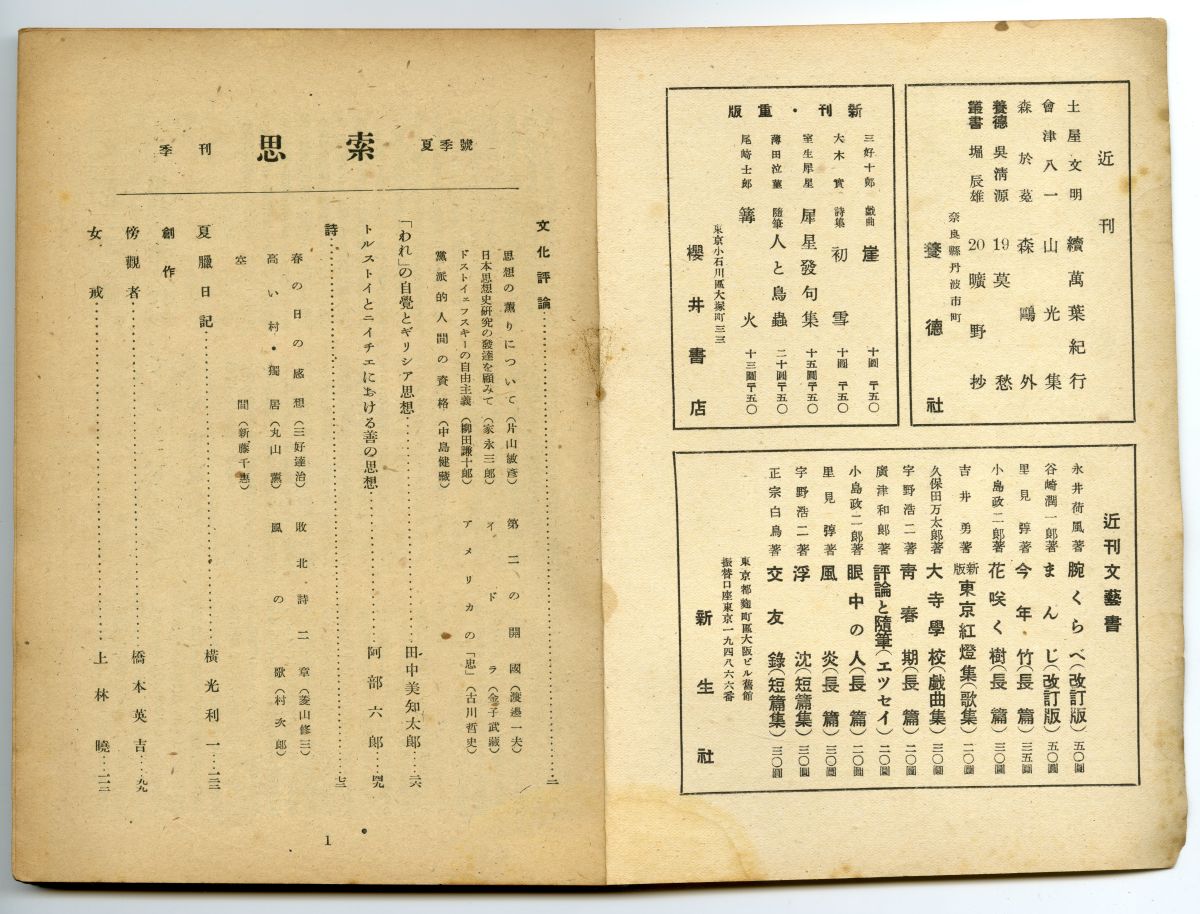 近刊
土屋文明 續萬葉紀行
會津八一 山光集
森於菟 森鷗外
養德叢書
吳清源 19 莫愁
堀辰雄 20 曠野抄
奈良縣丹波市町
養德社
新刊・重版
三好十郎 戲曲 崖 十圓 〒五〇
大木實 詩集 初雪 十圓 〒五〇
室生犀星 犀星發句集 十五圓〒五〇
薄田泣菫 隨筆 人と鳥蟲 二十圓〒五〇
尾崎士郎 篝火 十三圓〒五〇
東京小石川區大塚町三三
櫻井書店
近刊文藝書
永井荷風著 腕くらべ(改訂版) 五〇圓
谷崎潤一郎著 まんじ(改訂版) 五〇圓
里見弴著 今年竹(長篇) 三五圓
小島政二郎著 花咲く樹(長篇) 三〇圓
吉井勇著 新版 東京紅燈集(歌集) 二〇圓
久保田万太郎著 大寺學校(戲曲集) 三〇圓
宇野浩二著 靑春期(長篇) 二〇圓
廣津和郎著 評論と隨筆(エツセイ) 二〇圓
小島政二郎著 眼中の人(長篇) 二〇圓
里見弴著 風炎(長篇) 三〇圓
宇野浩二著 浮沈(短篇集) 三〇圓
正宗白鳥著 交友錄(短篇集) 三〇圓
東京都麴町區大阪ビル舊館
振替口座東京一九四八六六番
新生社
季刊 思索 夏季號
文化評論……二
思想の薰りについて(片山敏彥) 第二の開國(渡邊一夫)
日本思想史硏究の發達を顧みて(家永三郎) イドラ(金子武藏)
ドストイェフスキーの自由主義(柳田謙十郎) アメリカの「忠」(古川哲史)
黨派的人間の資格(中島健藏)
「われ」の自覺とギリシア思想……田中美知太郎…三六
トルストイとニイチエにおける善の思想……阿部六郎…四九
詩……七三
春の日の感想(三好達治) 敗北詩二章(菱山修三)
高い村・獨居(丸山薰) 風の歌(村次郎)
空間(新藤千惠)
夏臘日記……橫光利一…一三三
創作
傍觀者……橋本英吉…九九
女戒……上林曉…一一二
1